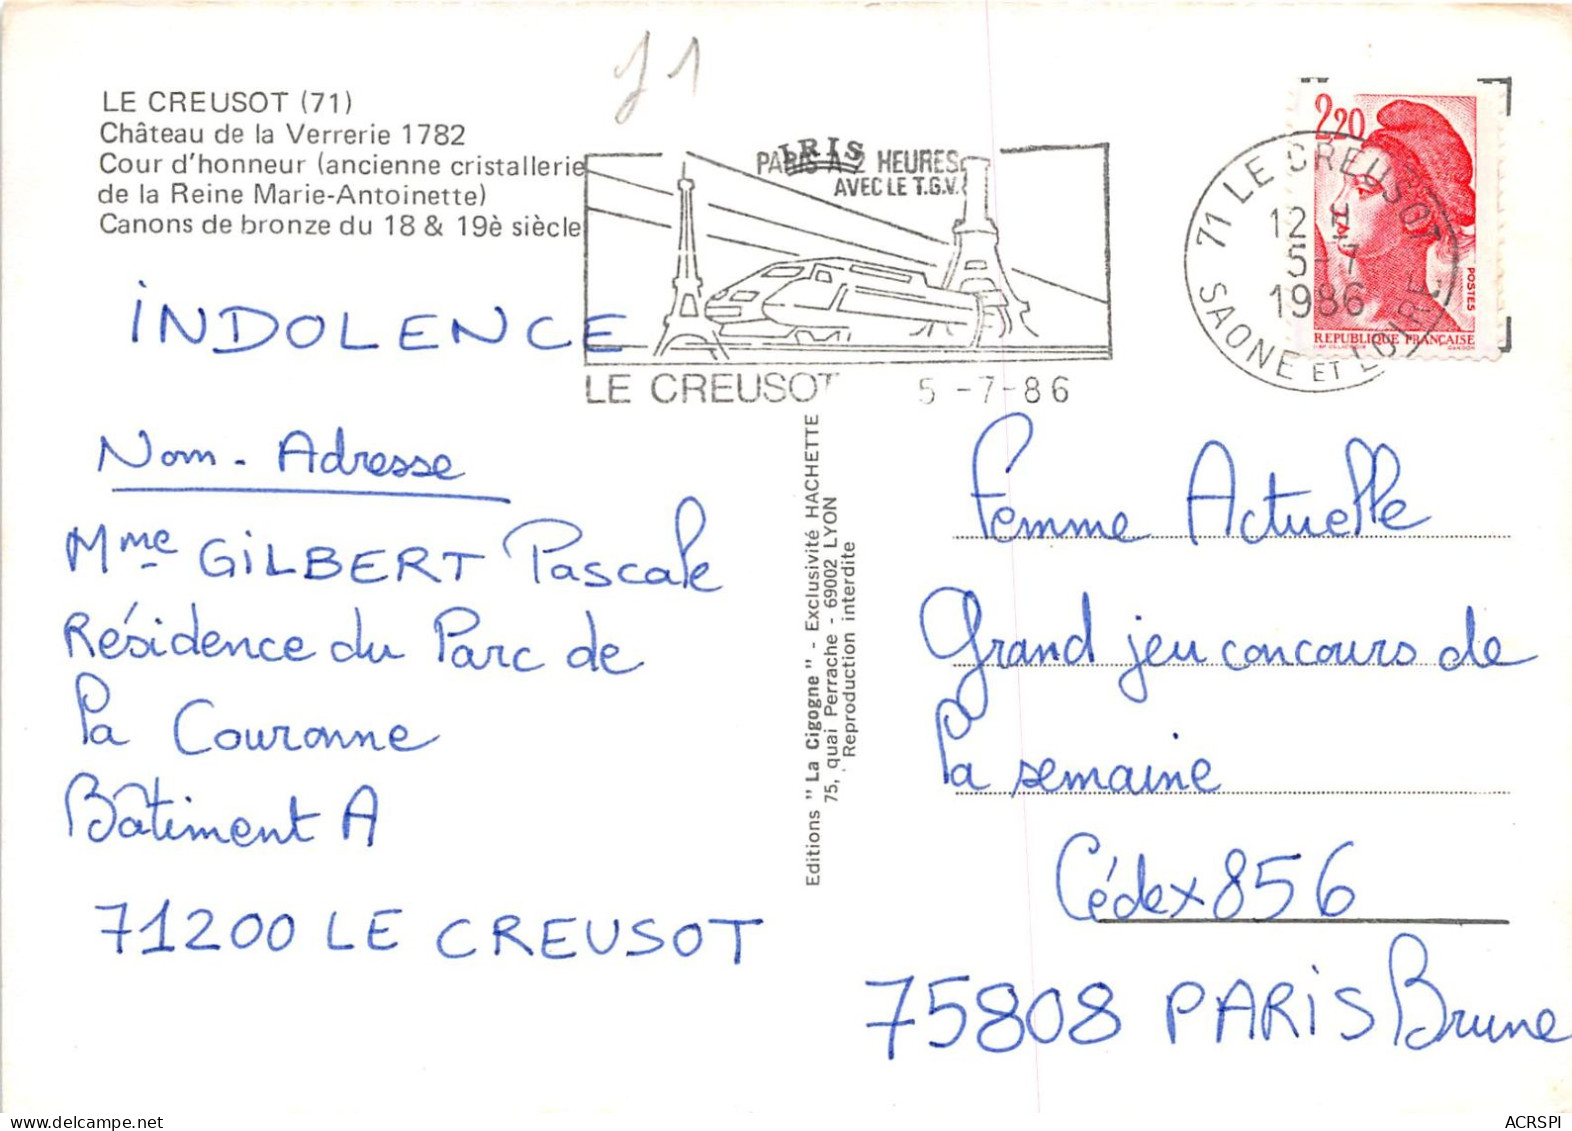 LE CREUSOT (71)
Château de la Verrerie 1782
Cour d'honneur (ancienne cristallerie
de la Reine Marie-Antoinette)
Canons de bronze du 18 & 19è siècle
J1
IRIS
PARIS A 2 HEURES
AVEC LE T.G.V.
LE CREUSOT 5 -7-86
71 LE CREUSOT
12 H
5-7
1986
SAONE ET LOIRE
2,20
POSTES
REPUBLIQUE FRANÇAISE
INDOLENCE
Nom - Adresse
Mme GILBERT Pascale
Résidence du Parc de
la Couronne
Bâtiment A
71200 LE CREUSOT
Editions " La Cigogne " - Exclusivité HACHETTE
75, quai Perrache - 69002 LYON
Reproduction interdite
Femme Actuelle
Grand jeu concours de
la semaine
Cédex 856
75808 PARIS Brune
ACRSPI